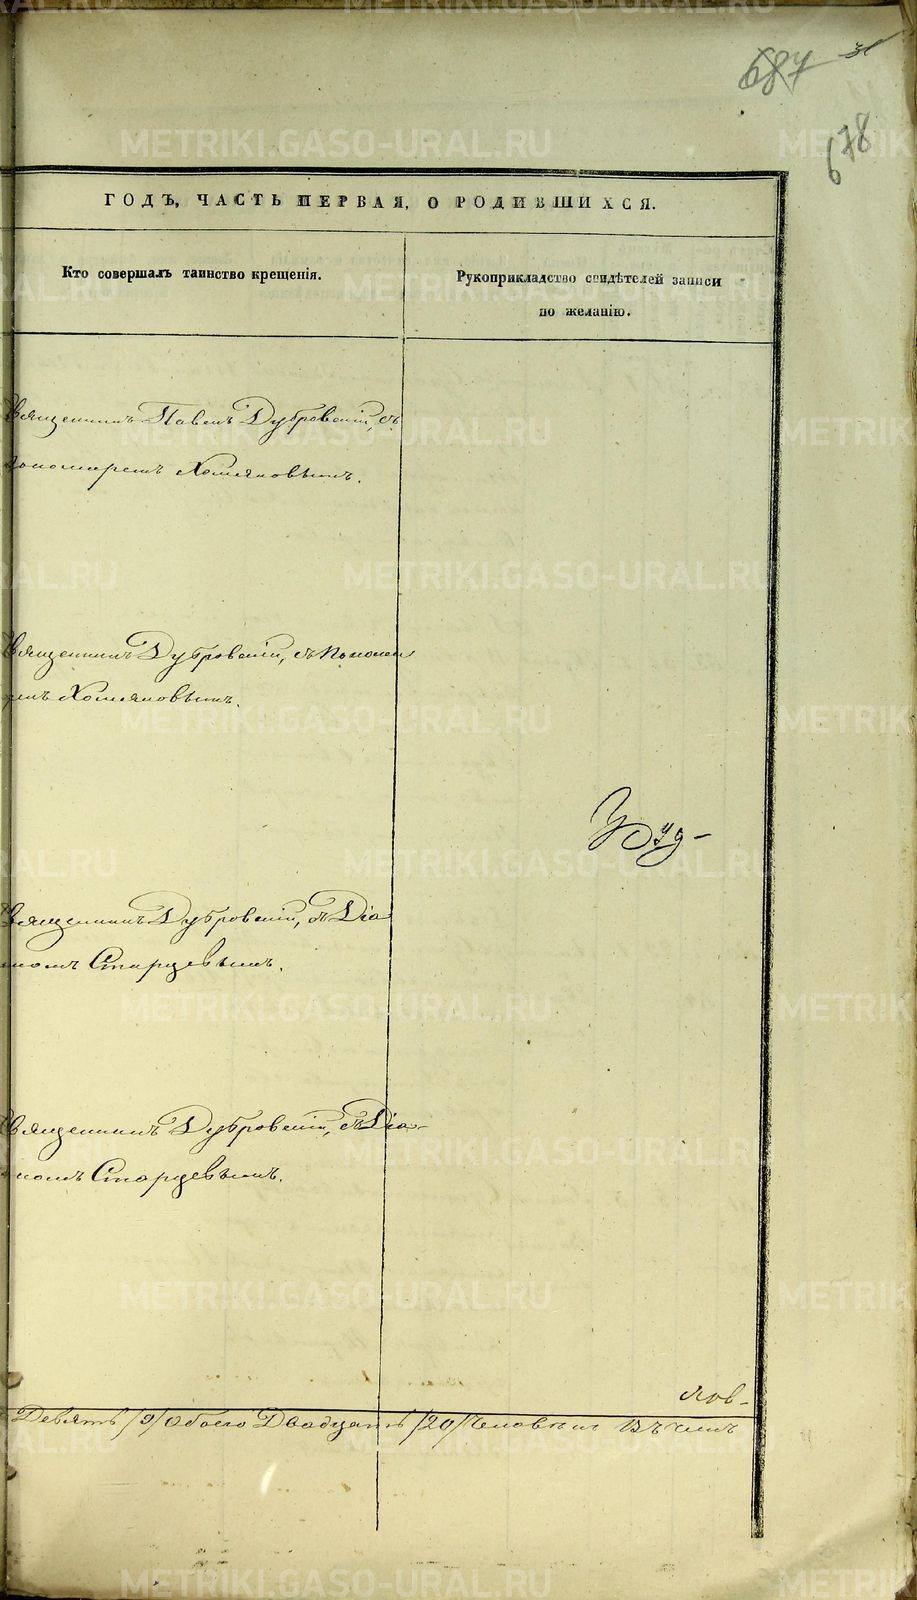 687
678
ГОДЪ, ЧАСТЬ ПЕРВАЯ, О РОДИВШИХСЯ.
Кто совершалъ таинство крещенія.
Рукоприкладство свидѣтелей записи
по желанію.
Священникъ Павелъ Дубровскій, съ
пономаремъ Хомяковымъ.
Священникъ Дубровскій, съ Понома
ремъ Хомяковымъ.
Священникъ Дубровскій, съ Діа
кономъ Старцевымъ.
Священникъ Дубровскій, съ Діа-
кономъ Старцевымъ.
Девять /9/ Обоего Двадцать /20/ Человѣкъ Въ чемъ
METRIKI.GASO-URAL.RU